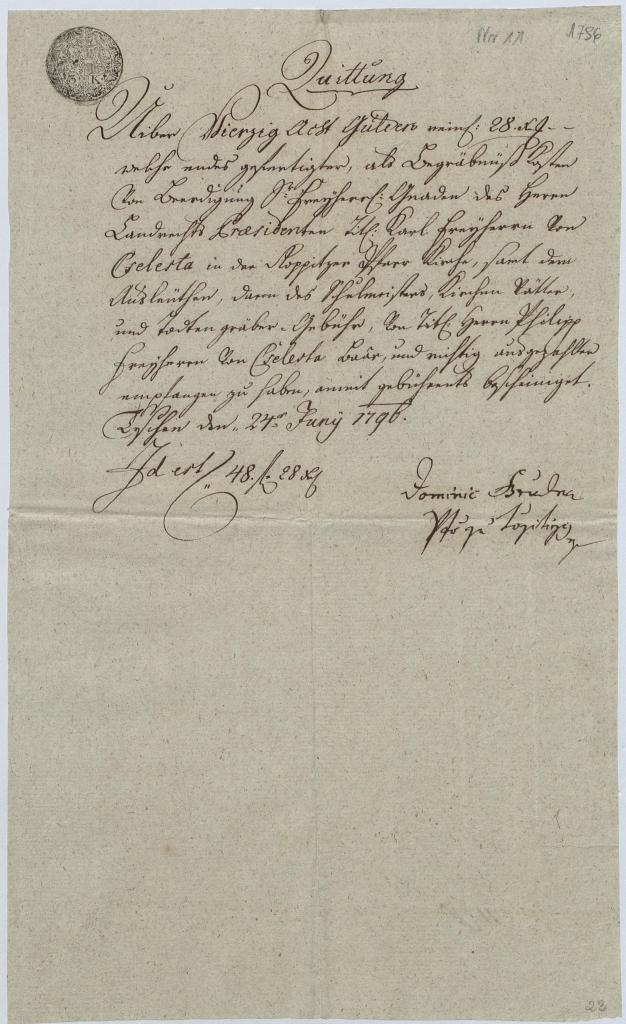 Nro 11 1796
3 K
Quittung
Uiber Vierzig Acht Gulden reinl: 28 xr
welche endes gefertigter, als Begräbnüß Kosten
von Beerdigung Sr. Freyherrl: Gnaden des Herrn
Landrechts Præsidenten Titl: Karl Freyherrn von
Cselesta in der Koppitzer Pfarr Kirche, samt dem
Ausleüthen, dann des Schulmeisters, Kirchen Vätter,
und todtengräber-Gebühr, von Titl: Herrn Philipp
Freyherrn von Cselesta baar, und richtig ausgezahlter
empfangen zu haben, anmit gebührents bescheiniget.
Teschen den 24ten Juny 1796.
Id est 48 fl 28 xr
Dominic
Pfr zu
23